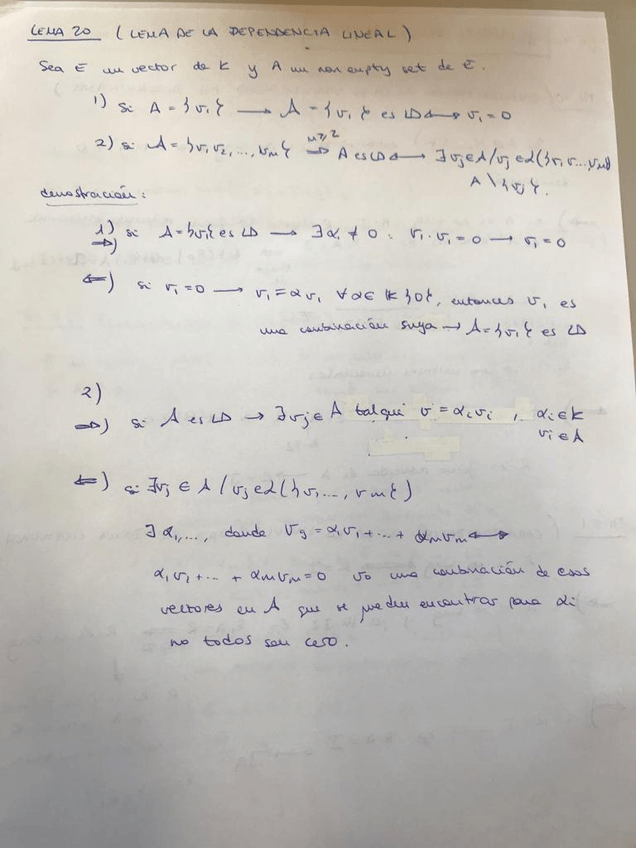 LEMA 20 (LEMA DE LA DEPENDENCIA LINEAL)
Sea E un vector de K y A un non empty set de E.
1) Si A = {v₁} → A = {v₁} es LD ↔ v₁ = 0
2) si A = {v₁ v₂, ..., vₘ} m≥2 ⇒ A es LD ↔ ∃ vⱼ ∈ A / vⱼ ∈ L({v₁, v..., vₘ})
A \ {vⱼ}.
demostración:
1)
⇒) si A = {v₁} es LD → ∃ α₁ ≠ 0 : v₁ · v₁ = 0 → v₁ = 0
⇐) si v₁ = 0 → v₁ = α v₁ ∀ α ∈ K \ {0}, entonces v₁ es
una combinación suya → A = {v₁} es LD
2)
⇒) si A es LD → ∃ vⱼ ∈ A tal que v = αᵢ vᵢ , αᵢ ∈ K
vᵢ ∈ A
⇐) si ∃ vⱼ ∈ A / vⱼ ∈ L({v₁, ..., vₘ})
∃ α₁, ..., donde vⱼ = α₁ v₁ + ... + αₘ vₘ ↔
α₁ v₁ + ... + αₘ vₘ = 0 una combinación de esos
vectores en A que se pueden encontrar para αᵢ
no todos son cero.